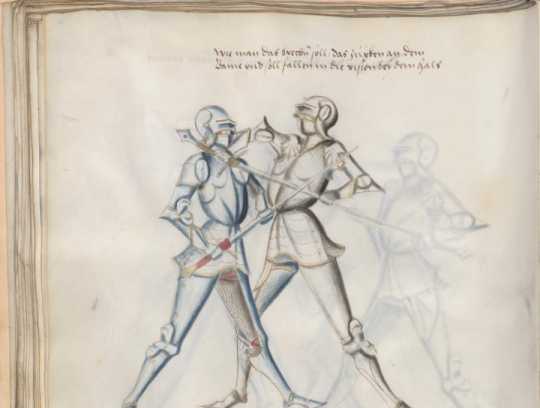 Wie man das prechn̄ soll das zucken an dem
Baine vnd soll fallen in die vislen bey dem hals